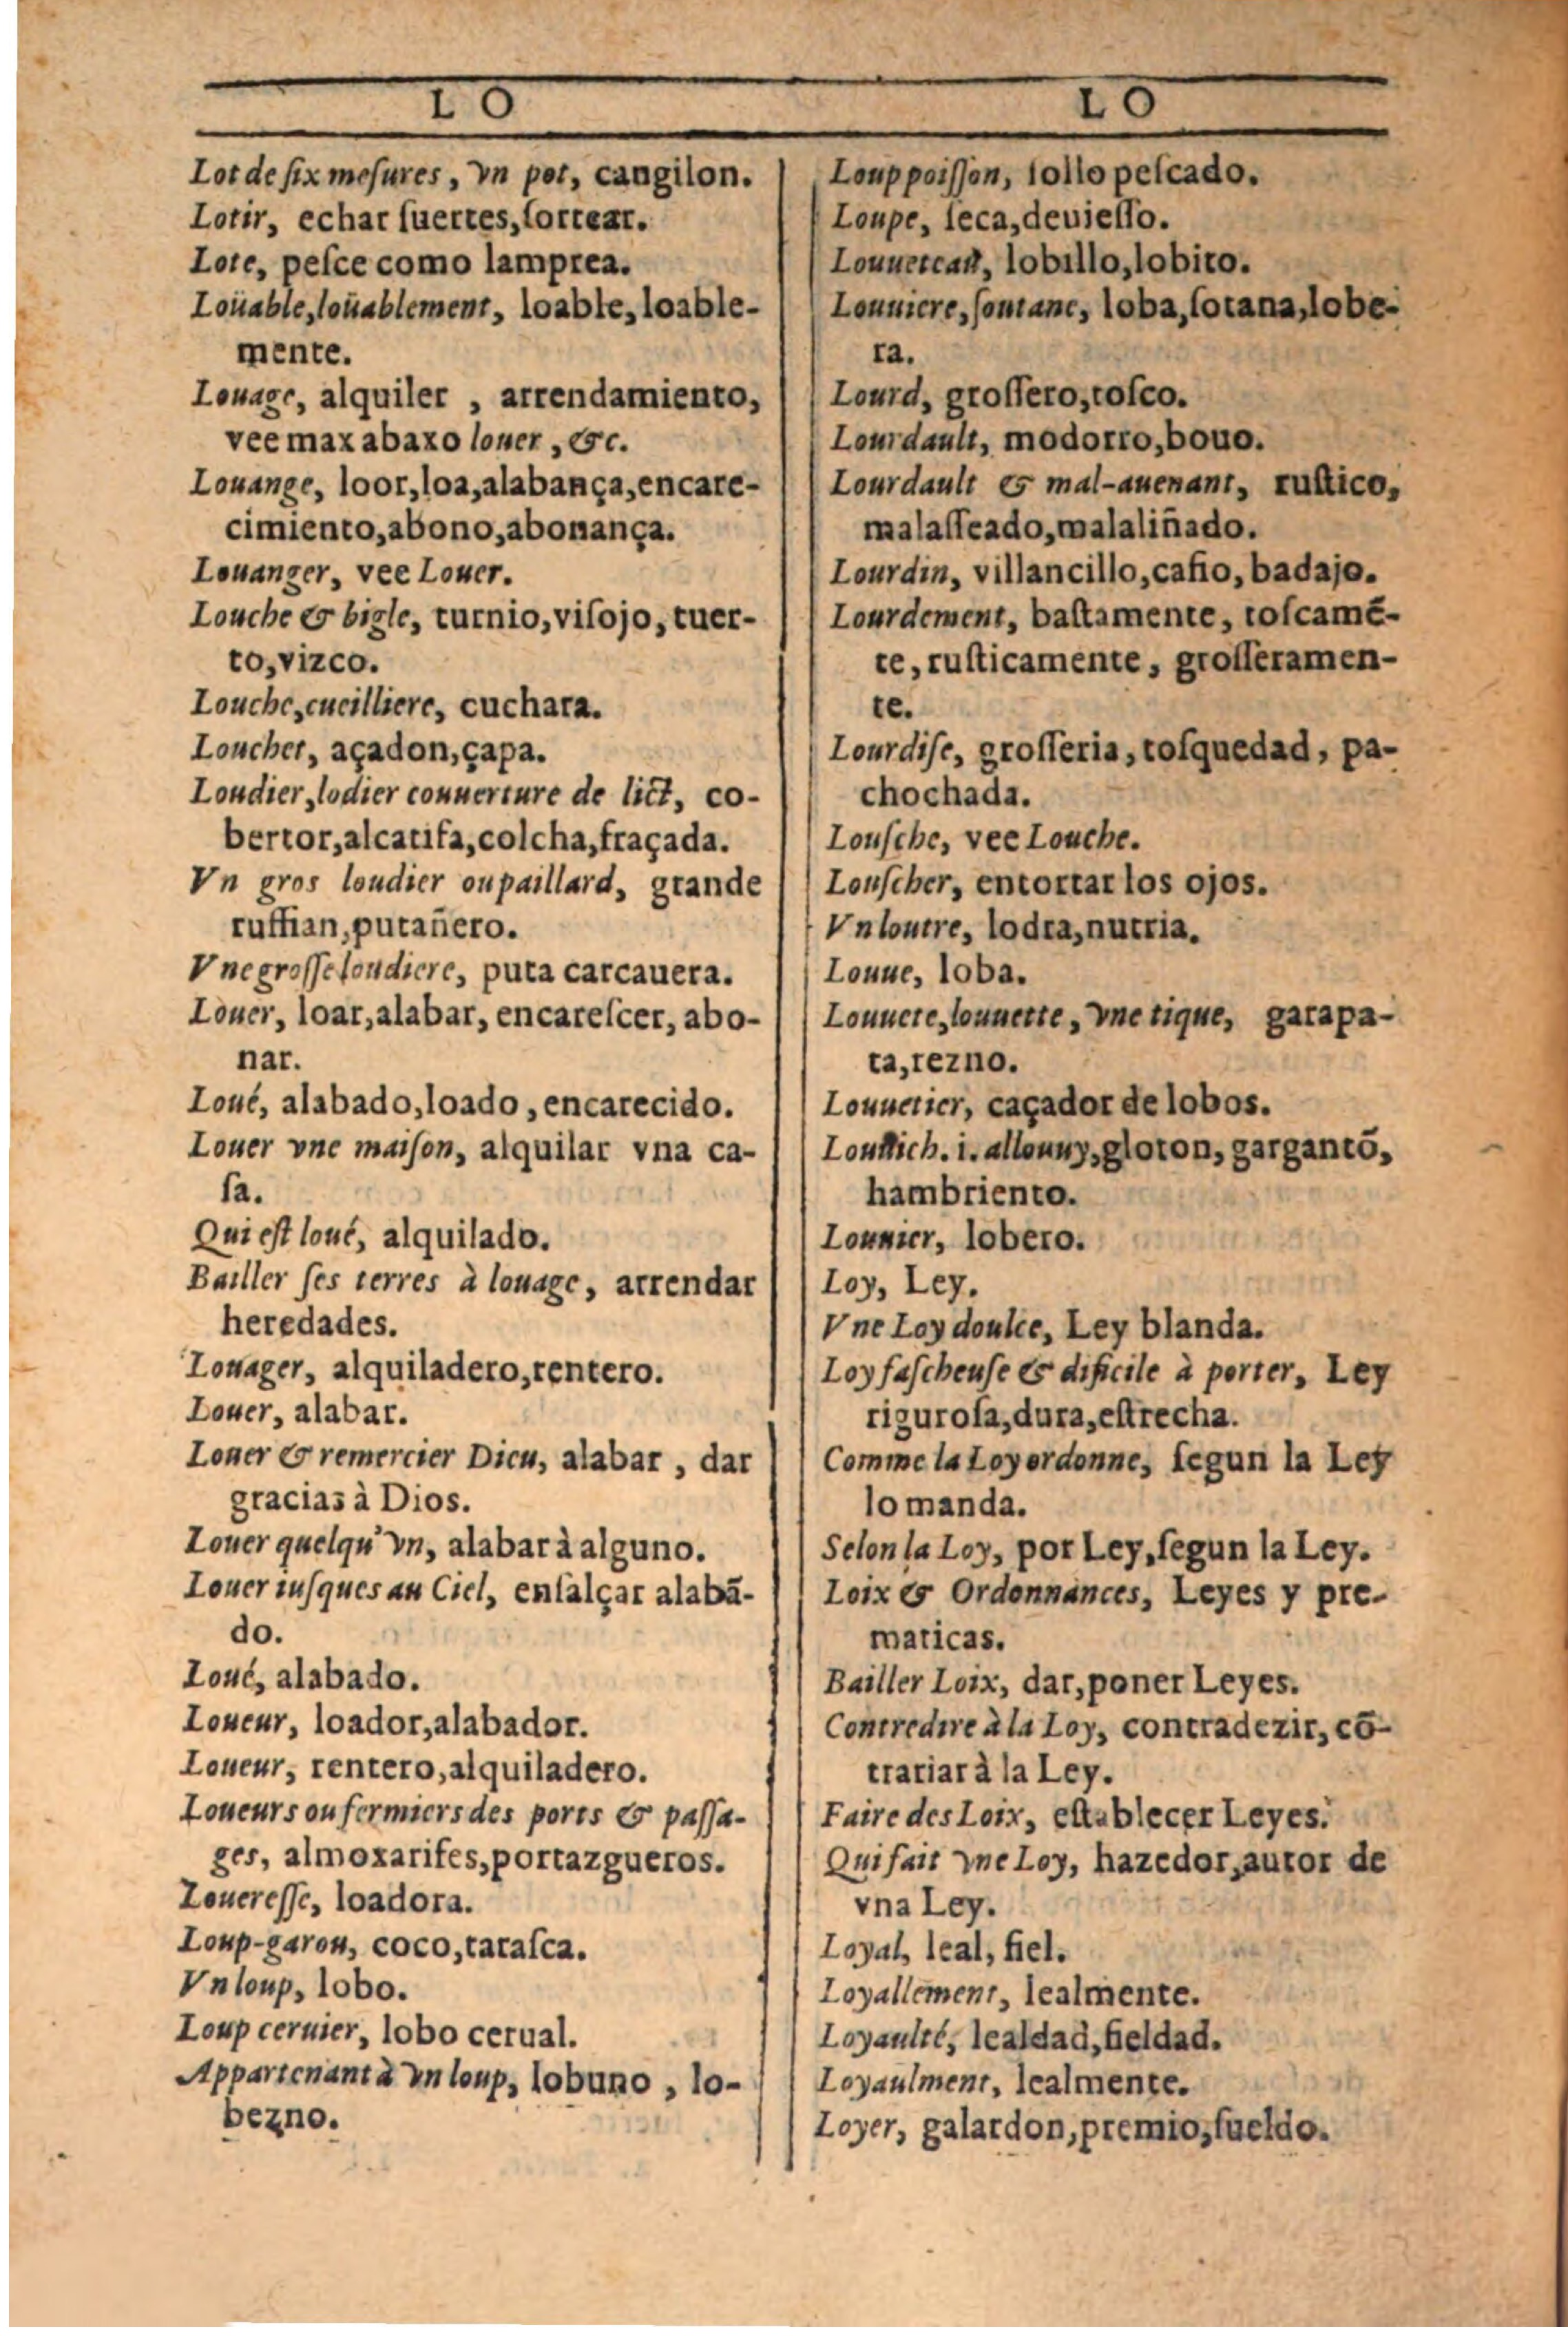 LO
Lot de ſix meſures, vn pot, cangilon.
Lotir, echar ſuertes, ſortear.
Lote, peſce como lamprea.
Loüable, loüablement, loable, loable-
mente.
Louage, alquiler, arrendamiento,
vee max abaxo louer, &c.
Louange, loor, loa, alabança, encare-
cimiento, abono, abonança.
Louanger, vee Louer.
Louche & bigle, turnio, viſojo, tuer-
to, vizco.
Louche, cueilliere, cuchara.
Louchet, açadon, çapa.
Loudier, lodier couuerture de lict, co-
bertor, alcatifa, colcha, fraçada.
Vn gros loudier ou paillard, grande
ruffian, putañero.
Vne groſſe loudiere, puta carcauera.
Louer, loar, alabar, encareſcer, abo-
nar.
Loué, alabado, loado, encarecido.
Louer vne maiſon, alquilar vna ca-
ſa.
Qui eſt loué, alquilado.
Bailler ſes terres à louage, arrendar
heredades.
Louager, alquiladero, rentero.
Louer, alabar.
Louer & remercier Dieu, alabar, dar
gracias à Dios.
Louer quelqu'vn, alabar à alguno.
Louer iuſques au Ciel, enſalçar alabã-
do.
Loué, alabado.
Loueur, loador, alabador.
Loueur, rentero, alquiladero.
Loueurs ou fermiers des ports & paſſa-
ges, almoxarifes, portazgueros.
Loueresſe, loadora.
Loup-garou, coco, taraſca.
Vn loup, lobo.
Loup ceruier, lobo cerual.
Appartenant à vn loup, lobuno, lo-
bezno.
LO
Loup poiſſon, ſollo peſcado.
Loupe, ſeca, deuieſſo.
Louueteau, lobillo, lobito.
Louuiere, ſoutane, loba, ſotana, lobe-
ra.
Lourd, groſſero, toſco.
Lourdault, modorro, bouo.
Lourdault & mal-auenant, ruſtico,
malaſſeado, malaliñado.
Lourdin, villancillo, cafio, badajo.
Lourdement, baſtamente, toſcamẽ-
te, ruſticamente, groſſeramen-
te.
Lourdiſe, groſſeria, toſquedad, pa-
chochada.
Louſche, vee Louche.
Louſcher, entortar los ojos.
Vn loutre, lodra, nutria.
Louue, loba.
Louuete, louuette, vne tique, garapa-
ta, rezno.
Louuetier, caçador de lobos.
i. allouuy, gloton, gargantõ,
hambriento.
Louuier, lobero.
Loy, Ley.
Vne Loy doulce, Ley blanda.
Loy faſcheuſe & dificile à porter, Ley
riguroſa, dura, eſtrecha.
Comme la Loy ordonne, ſegun la Ley
lo manda.
Selon la Loy, por Ley, ſegun la Ley.
Loix & Ordonnances, Leyes y pre-
maticas.
Bailler Loix, dar, poner Leyes.
Contredire à la Loy, contradezir, cõ-
trariar à la Ley.
Faire des Loix, eſtablecer Leyes.
Qui fait vne Loy, hazedor, autor de
vna Ley.
Loyal, leal, fiel.
Loyallement, lealmente.
Loyaulté, lealdad, fieldad.
Loyaulment, lealmente.
Loyer, galardon, premio, ſueldo.